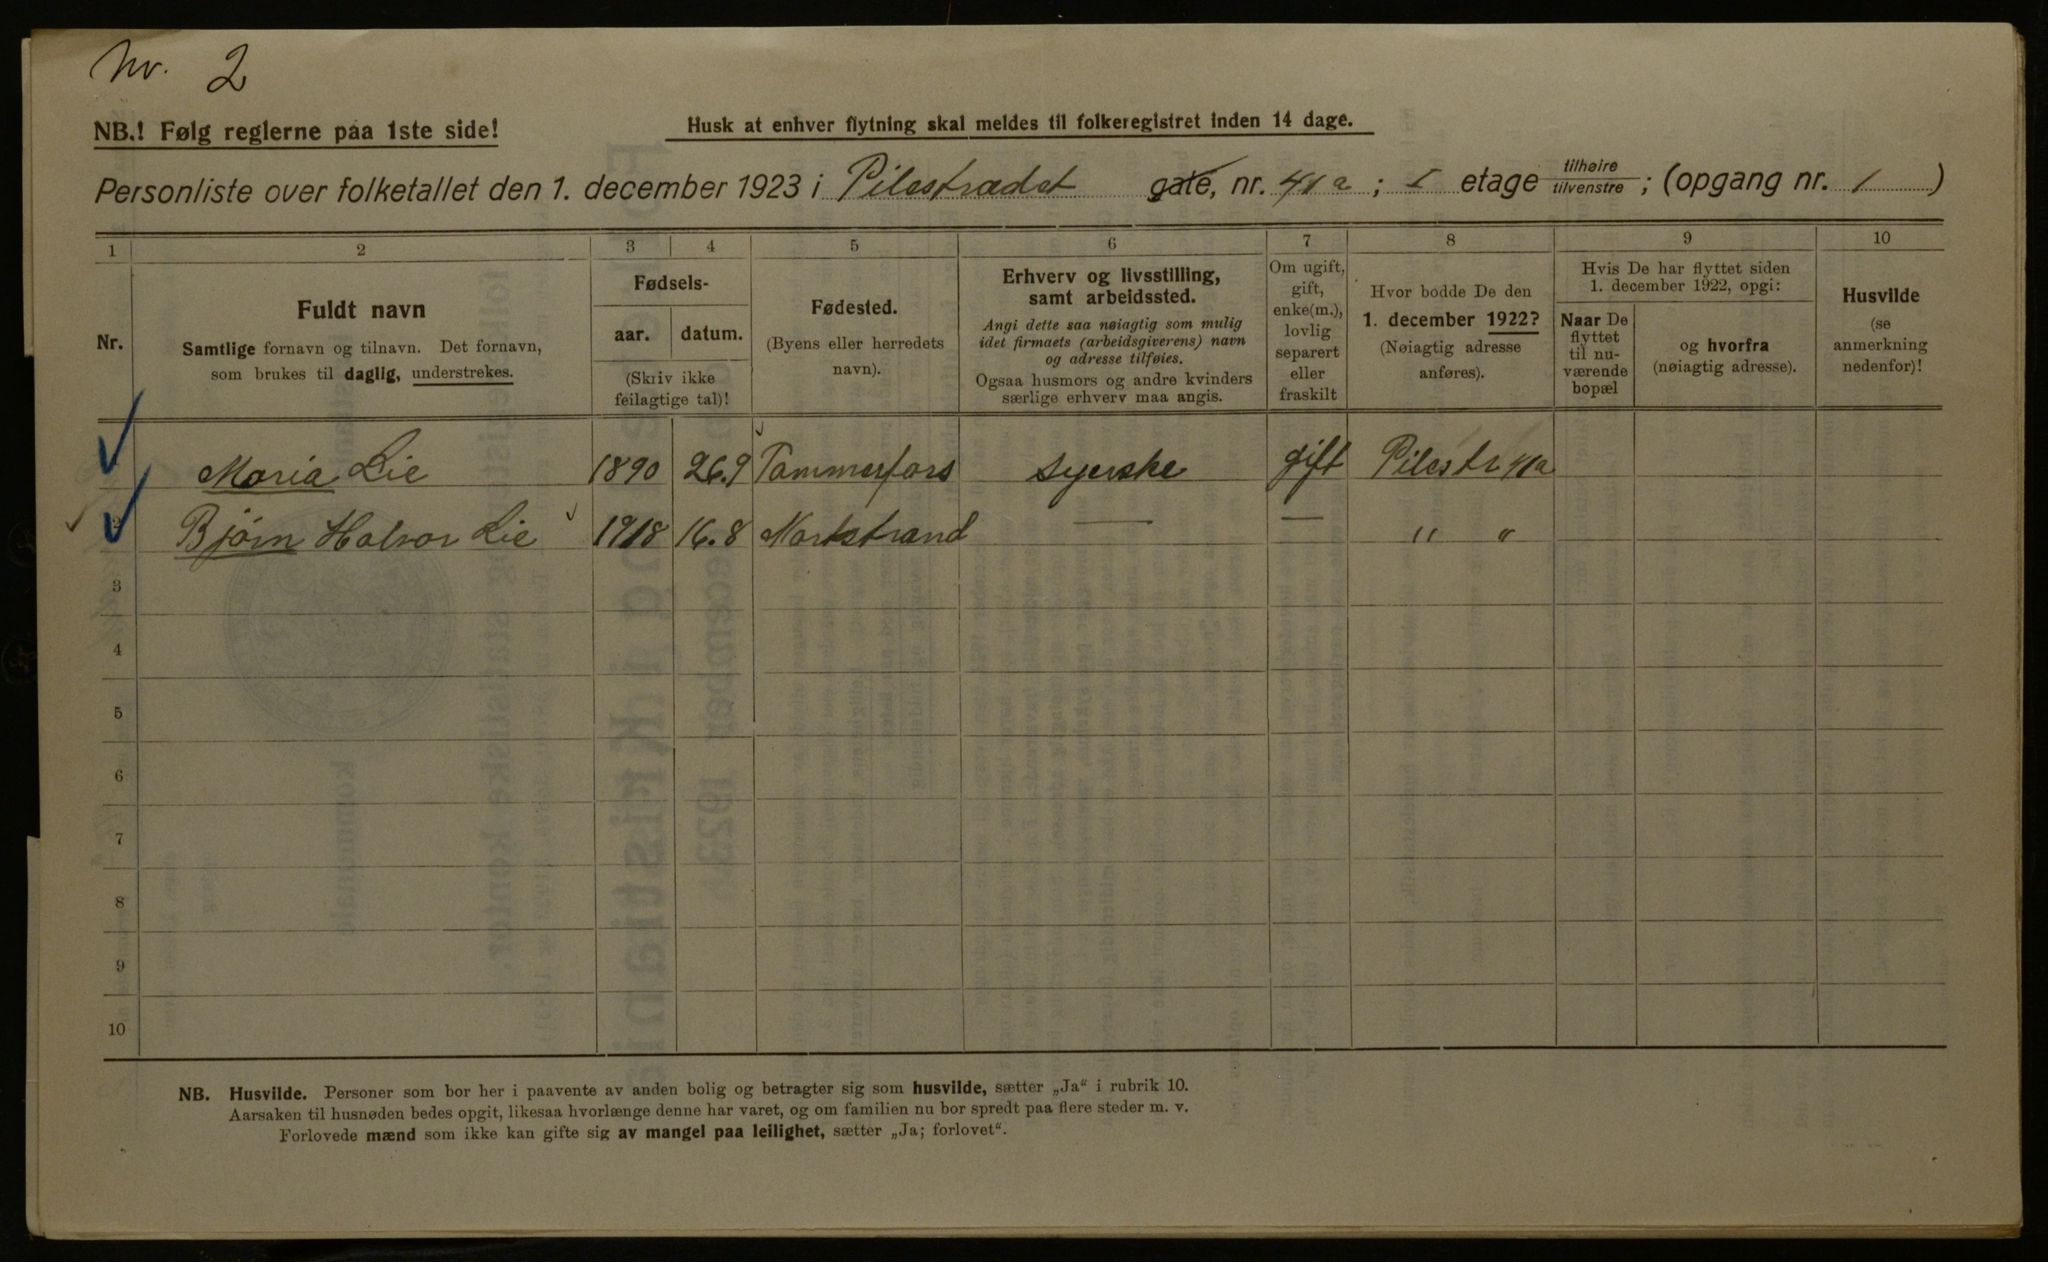 Nr. 2
NB.! Følg reglerne paa 1ste side!
Husk at enhver flytning skal meldes til folkeregistret inden 14 dage.
Personliste over folketallet den 1. december 1923 i Pilestrædet gate, nr. 41a ; I etage tilhøire tilvenstre ; (opgang nr. 1 )
1 2 3 4 5 6 7 8 9 10
Nr.
Fuldt navn
Samtlige fornavn og tilnavn. Det fornavn,
som brukes til daglig, understrekes.
Fødsels-
aar. datum.
(Skriv ikke
feilagtige tal)!
Fødested.
(Byens eller herredets
navn).
Erhverv og livsstilling,
samt arbeidssted.
Angi dette saa nøiagtig som mulig
idet firmaets (arbeidsgiverens) navn
og adresse tilføies.
Ogsaa husmors og andre kvinders
særlige erhverv maa angis.
Om ugift,
gift,
enke(m.),
lovlig
separert
eller
fraskilt
Hvor bodde De den
1. december 1922?
(Nøiagtig adresse
anføres).
Hvis De har flyttet siden
1. december 1922, opgi:
Naar De
flyttet
til nu-
værende
bopæl
og hvorfra
(nøiagtig adresse).
Husvilde
(se
anmerkning
nedenfor)!
Maria Lie 1890 26.9 Tammerfors syerske gift Pilestr 41a
2 Bjørn Halvor Lie 1918 16.8 Nordstrand — — " "
3
4
5
6
7
8
9
10
NB. Husvilde. Personer som bor her i paavente av anden bolig og betragter sig som husvilde, sætter „Ja“ i rubrik 10.
Aarsaken til husnøden bedes opgit, likesaa hvorlænge denne har varet, og om familien nu bor spredt paa flere steder m. v.
Forlovede mænd som ikke kan gifte sig av mangel paa leilighet, sætter „Ja; forlovet“.